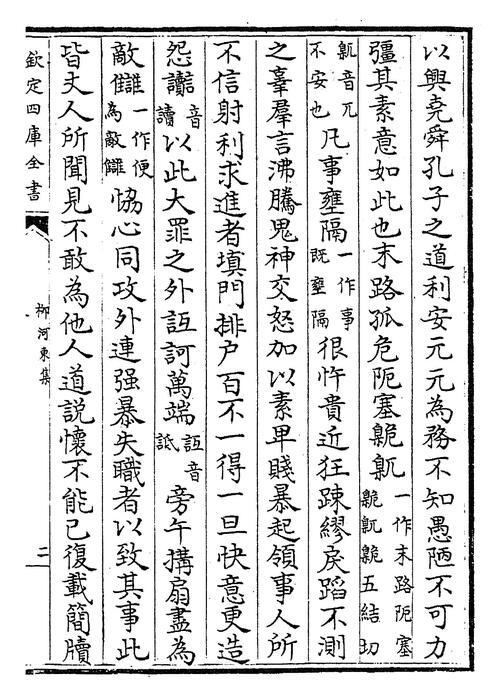 以興堯舜孔子之道利安元元為務不知愚陋不可力
彊其素意如此也末路孤危阨塞臲卼一作末路阨塞臲卼臲五結切
卼音兀不安也凡事壅隔一作事既壅隔很忤貴近狂踈繆戾蹈不測
之辜羣言沸騰鬼神交怒加以素卑賤暴起領事人所
不信射利求進者填門排户百不一得一旦快意更造
怨讟音讀以此大罪之外詆訶萬端詆音旁午搆扇盡為
敵讎一作便為敵讎恊心同攻外連强暴失職者以致其事此
皆丈人所聞見不敢為他人道説懷不能已復載簡牘
欽定四庫全書
柳河東集
二